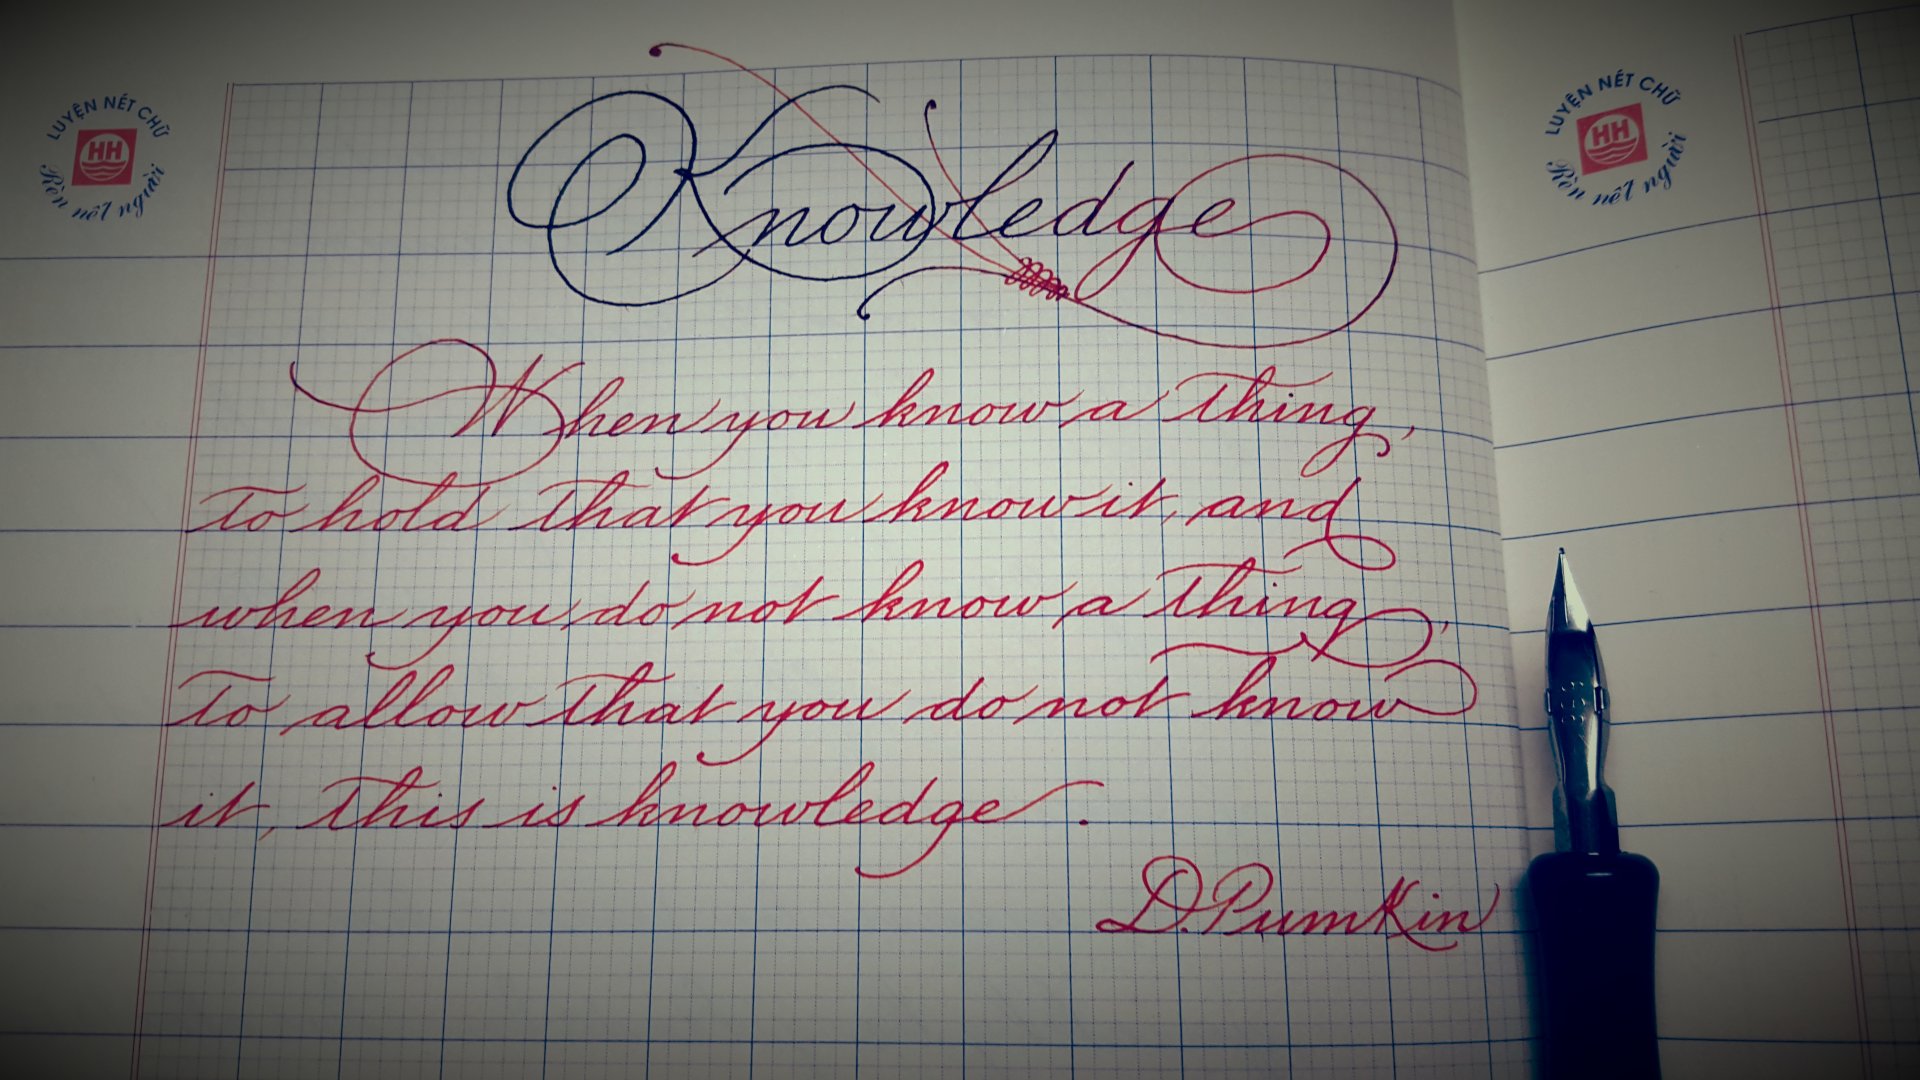 LUYỆN NÉT CHỮ
HH
Rèn nết người
LUYỆN NÉT CHỮ
HH
Rèn nết người
Knowledge
When you know a thing,
to hold that you know it, and
when you do not know a thing,
to allow that you do not know
it, this is knowledge.
D.Pumkin